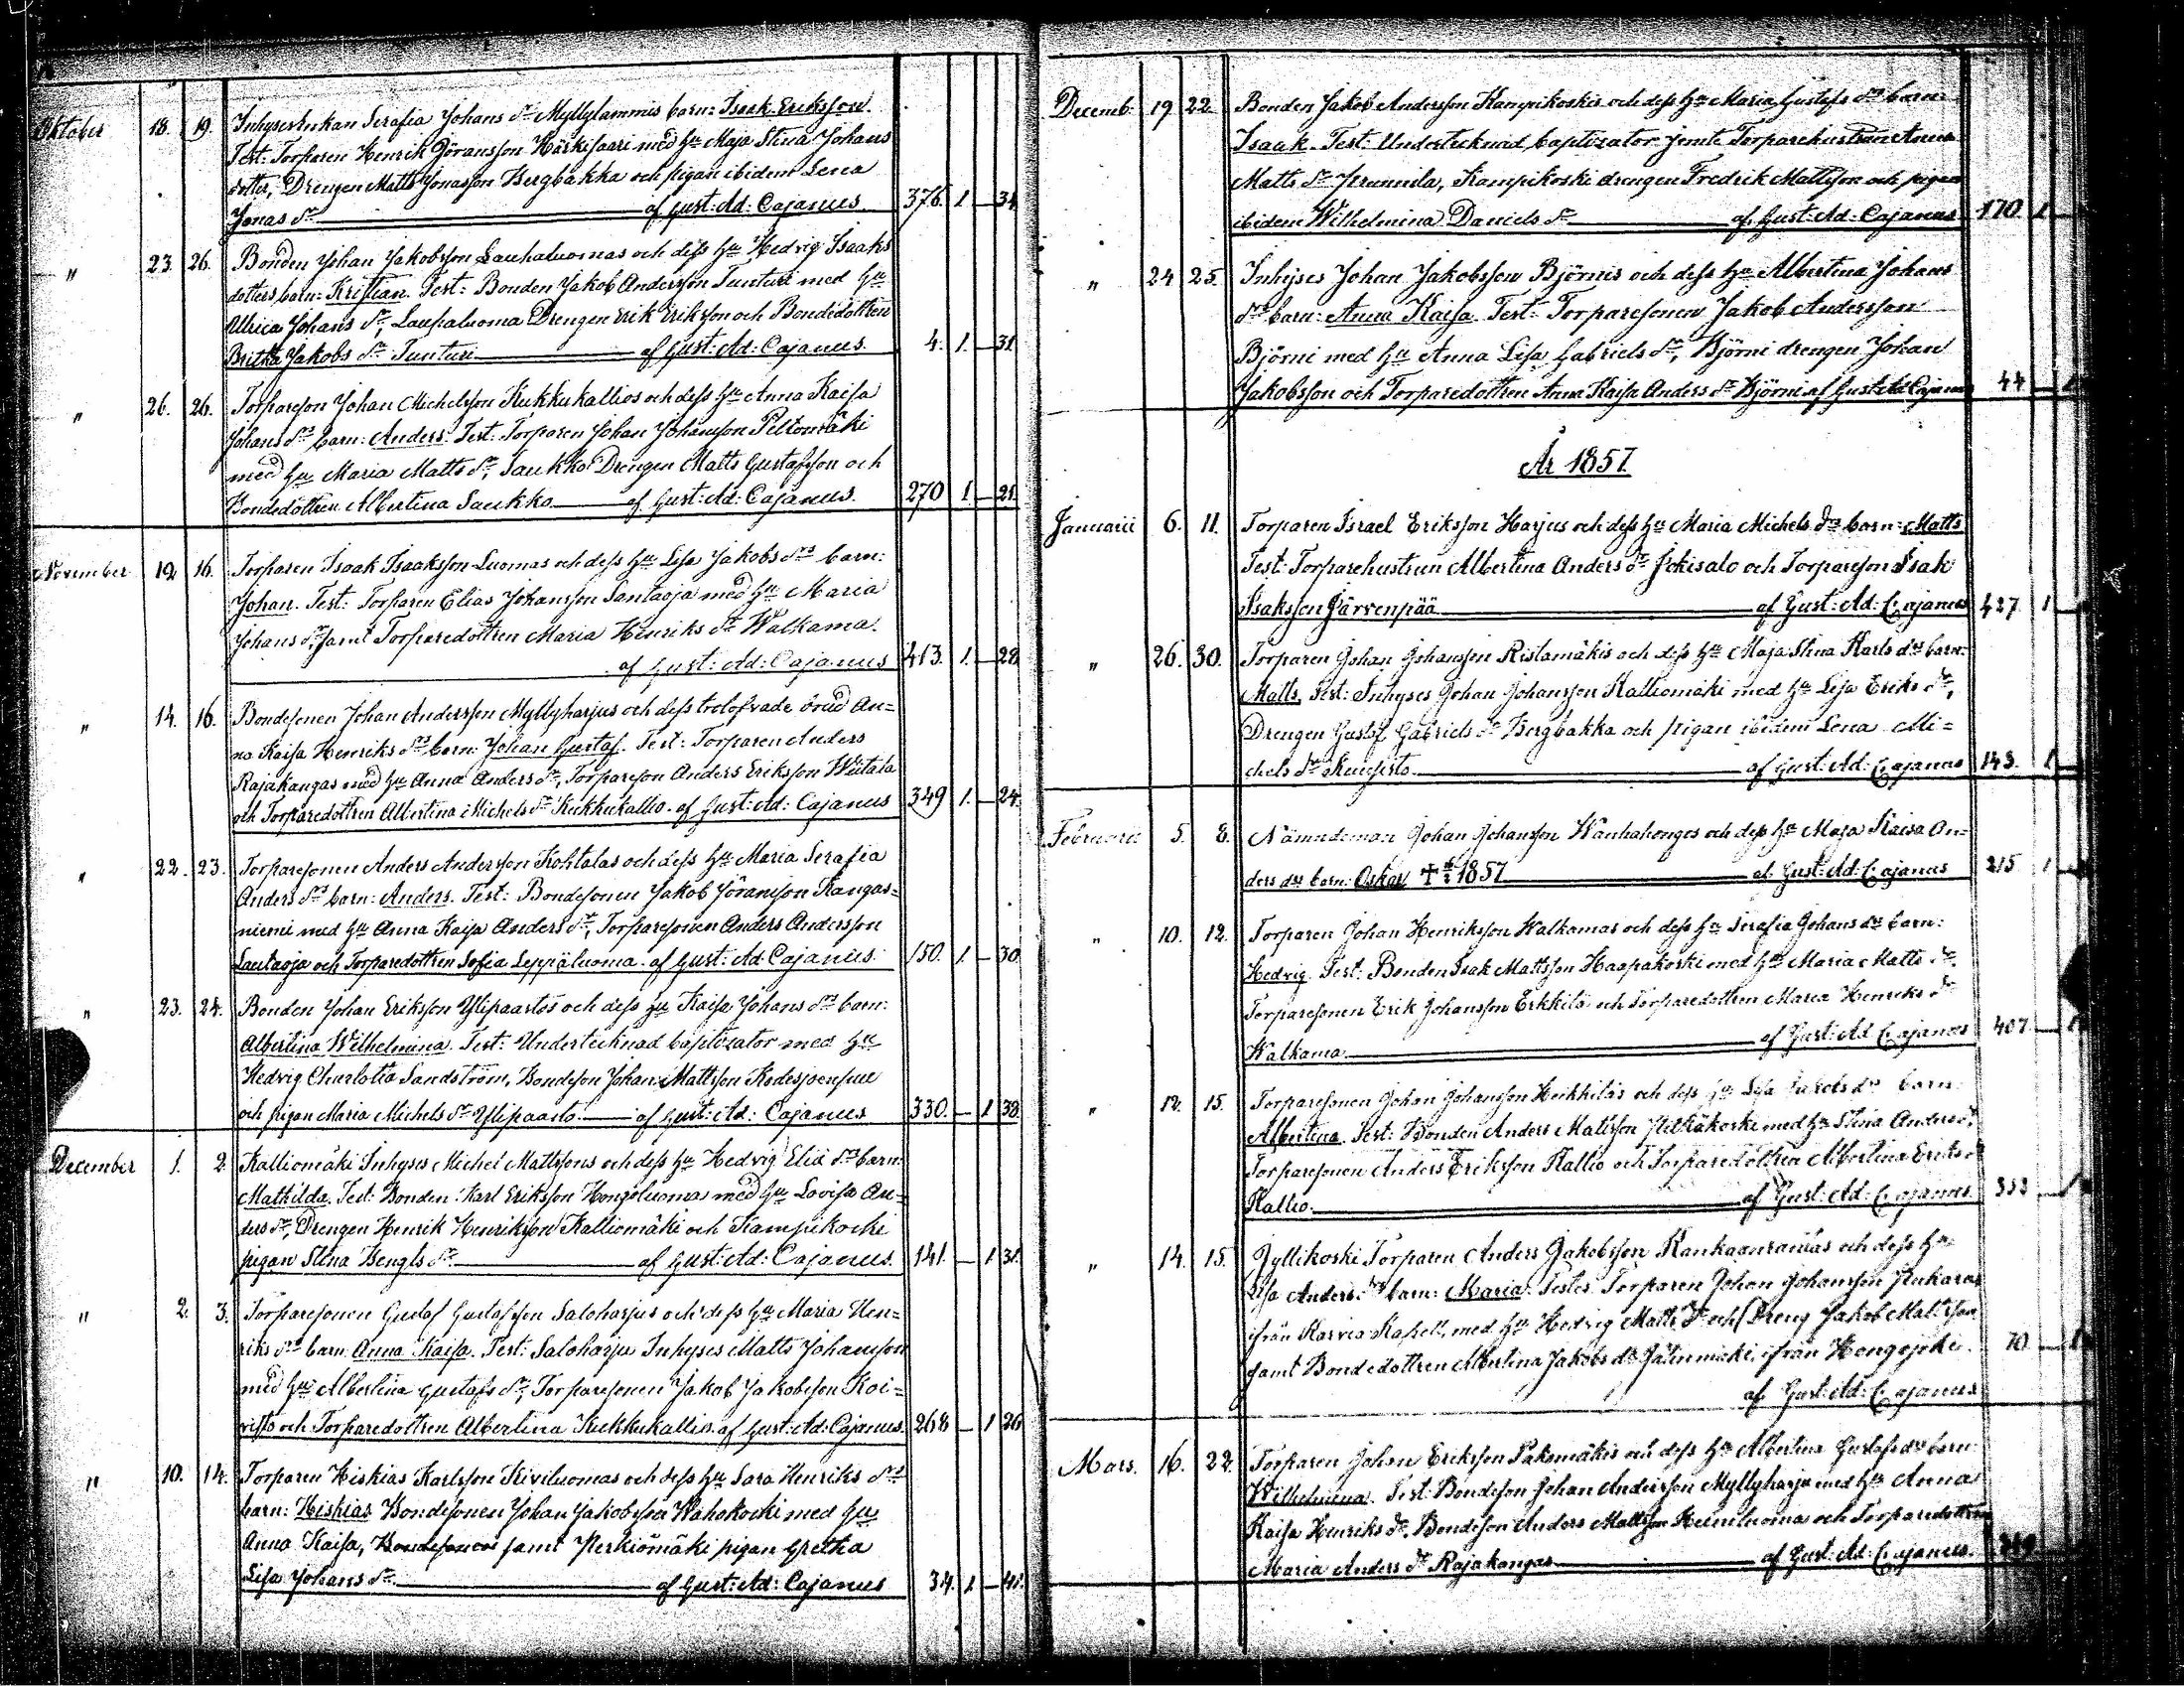 Oktober 18. 19. Inhysesenkan Serafia Johans dr Myllylammis barn: Isaak Eriksson.
Test: Torparen Henrik Göransson Härkisaari med hu Maja Stina Johans
dotter, Drengen Matts Jonasson Bergbakka och pigan ibidem Lena
Jonas dr af Gust: Ad: Cajanus 376. 1 — 34
" 23. 26. Bonden Johan Jakobsson Lauhaluomas och dess hu Hedvig Isaaks
dotters barn: Kristian. Test: Bonden Jakob Andersson Tunturi med hu
Ullrica Johans dr, Lauhaluoma Drengen Erik Eriksson och Bondedottren
Britha Jakobs dr Tunturi af Gust: Ad: Cajanus. 4. 1. — 31
" 26. 26. Torpareson Johan Michelsson Kukkukallios och dess hu Anna Kaisa
Johans drs barn: Anders. Test: Torparen Johan Johansson Peltomäki
med hu Maria Matts dr, Saukko Drengen Matts Gustafsson och
Bondedottren Albertina Saukko af Gust: Ad: Cajanus. 270 1. — 21
November 12 16. Torparen Isaak Isaaksson Luomas och dess hu Lisa Jakobs drs barn:
Johan. Test: Torparen Elias Johansson Santaoja med hu Maria
Johans dr, samt Torparedottren Maria Henriks dr Walkama.
af Gust: Ad: Cajanus 413. 1. — 28
" 14. 16. Bondesonen Johan Andersson Myllyharjus och dess trolofvade brud An=
na Kaisa Henriks drs barn: Johan Gustaf. Test: Torparen Anders
Rajakangas med hu Anna Anders dr, Torpareson Anders Eriksson Wiitala
och Torparedottren Albertina Michels dr Kukkukallio. af Gust: Ad: Cajanus 349 1. — 24.
" 22. 23. Torparesonen Anders Andersson Kohtalas och dess hu Maria Serafia
Anders drs barn: Anders. Test: Bondesonen Jakob Göransson Kangas=
niemi med hu Anna Kaisa Anders dr, Torparesonen Anders Andersson
Lautaoja och Torparedottren Sofia Leppäluoma. af Gust: Ad: Cajanus. 150. 1 — 30
" 23. 24. Bonden Johan Eriksson Ylipaastos och dess hu Kaisa Johans drs barn:
Albertina Wilhelmina. Test: Undertecknad baptizator med hu
Hedvig Charlotta Sandström, Bondeson Johan Mattsson Kodesjoensuu
och pigan Maria Michels dr Ylipaasto af Gust: Ad: Cajanus 330. — 1 38
December 1. 2 Kalliomäki Inhyses Michel Mattssons och dess hu Hedvig Eliæ drs barn:
Mathilda. Test: Bonden Karl Eriksson Hongoluoma med hu Lovisa An=
ders dr, Drengen Henrik Henriksson Kalliomäki och Kampikoski
pigan Stina Bengts dr af Gust: Ad: Cajanus. 141. — 1 31.
" 2. 3. Torparesonen Gustaf Gustafsson Saloharjus och dess hu Maria Hen=
riks drs barn: Anna Kaisa. Test: Saloharju Inhyses Matts Johansson
med hu Albertina Gustafs dr, Torparesonen Jakob Jakobsson Koi=
visto och Torparedottren Albertina Kukkukallio. af Gust: Ad: Cajanus. 268 — 1 26
" 10. 14. Torparen Hiskias Karlsson Kiviluomas och dess hu Sara Henriks drs
barn: Hiskias Bondesonen Johan Jakobsson Wahokoski med hu
Anna Kaisa, Bondesonen samt Yerkiömäki pigan Gretha
Lisa Johans dr af Gust: Ad: Cajanus 34. 1 — 41.
Decemb. 19 22. Bonden Jakob Andersson Kampikoskis och dess hu Maria Gustafs drs barn:
Isaak. Test: Undertecknad baptizator jemte Torparehustrun Anna
Matts dr Prunnila, Kampikoski drengen Fredrik Mattsson och pigan
ibidem Wilhelmina Daniels dr af Gust: Ad: Cajanus 170 1 —
" 24 25. Inhyses Johan Jakobsson Björnis och dess hu Albertina Johans
drs barn: Anna Kaisa. Test: Torparesonen Jakob Andersson
Björni med hu Anna Lisa Gabriels dr, Björni drengen Johan
Jakobsson och Torparedottren Anna Kaisa Anders dr Björni af Gust: Ad: Cajanus 44 — 1
År 1857.
Januarii 6. 11. Torparen Israel Eriksson Harjus och dess hu Maria Michels drs barn: Matts
Test: Torparehustrun Albertina Anders dr Jokisalo och Torpareson Isak
Isaksson Järvenpää af Gust: Ad: Cajanus 427. 1 —
" 26. 30. Torparen Johan Johansson Ristamäkis och dess hu Maja Stina Karls drs barn:
Matts. Test: Inhyses Johan Johansson Kalliomäki med hu Lisa Eriks dr,
Drengen Gustaf Gabriels dr Bergbakka och pigan ibidem Lena Mi=
chels dr af Gust: Ad: Cajanus 143. 1 —
Februarii 5. 8. Nämndeman Johan Johansson Wanhahonges och dess hu Maja Kaisa An=
ders drs barn: Oskar † 1857 af Gust: Ad: Cajanus 215 1 —
" 10. 12. Torparen Johan Henriksson Walkamas och dess hu Serafia Johans drs barn:
Hedvig. Test: Bonden Isak Mattsson Haapakoski med hu Maria Matts dr.
Torparesonen Erik Johansson Erkkilä och Torparedottren Maria Henriks dr
Walkama af Gust: Ad: Cajanus 407 — 1
" 12. 15. Torparesonen Johan Johansson Heikkiläs och dess hu Lisa Jakobs drs barn:
Albertina. Test: Bonden Anders Mattsson Pitkäkoski med hu Stina Anders dr,
Torparesonen Anders Eriksson Kallio och Torparedottren Albertina Eriks dr
Kallio. af Gust: Ad: Cajanus. 353 — 1
" 14. 15. Jyllikoski Torparen Anders Jakobsson Kankaanrantas och dess hu
Lisa Anders drs barn: Maria. Testes: Torparen Johan Johansson
ifrån Karvia Kapell, med hu Hedvig Matts dr och Dreng Jakob Mattsson
samt Bondedottren Albertina Jakobs dr ifrån Hongojoki. 70 — 1
af Gust: Ad: Cajanus
Mars. 16. 22. Torparen Johan Eriksson Pakomäkis och dess hu Albertina Gustafs drs barn:
Wilhelmina. Test: Bondeson Johan Andersson Myllyharju med hu Anna
Kaisa Henriks dr, Bondeson Anders Mattsson Keiniluoma och Torparedottren
Maria Anders dr Rajakangas af Gust: Ad: Cajanus.